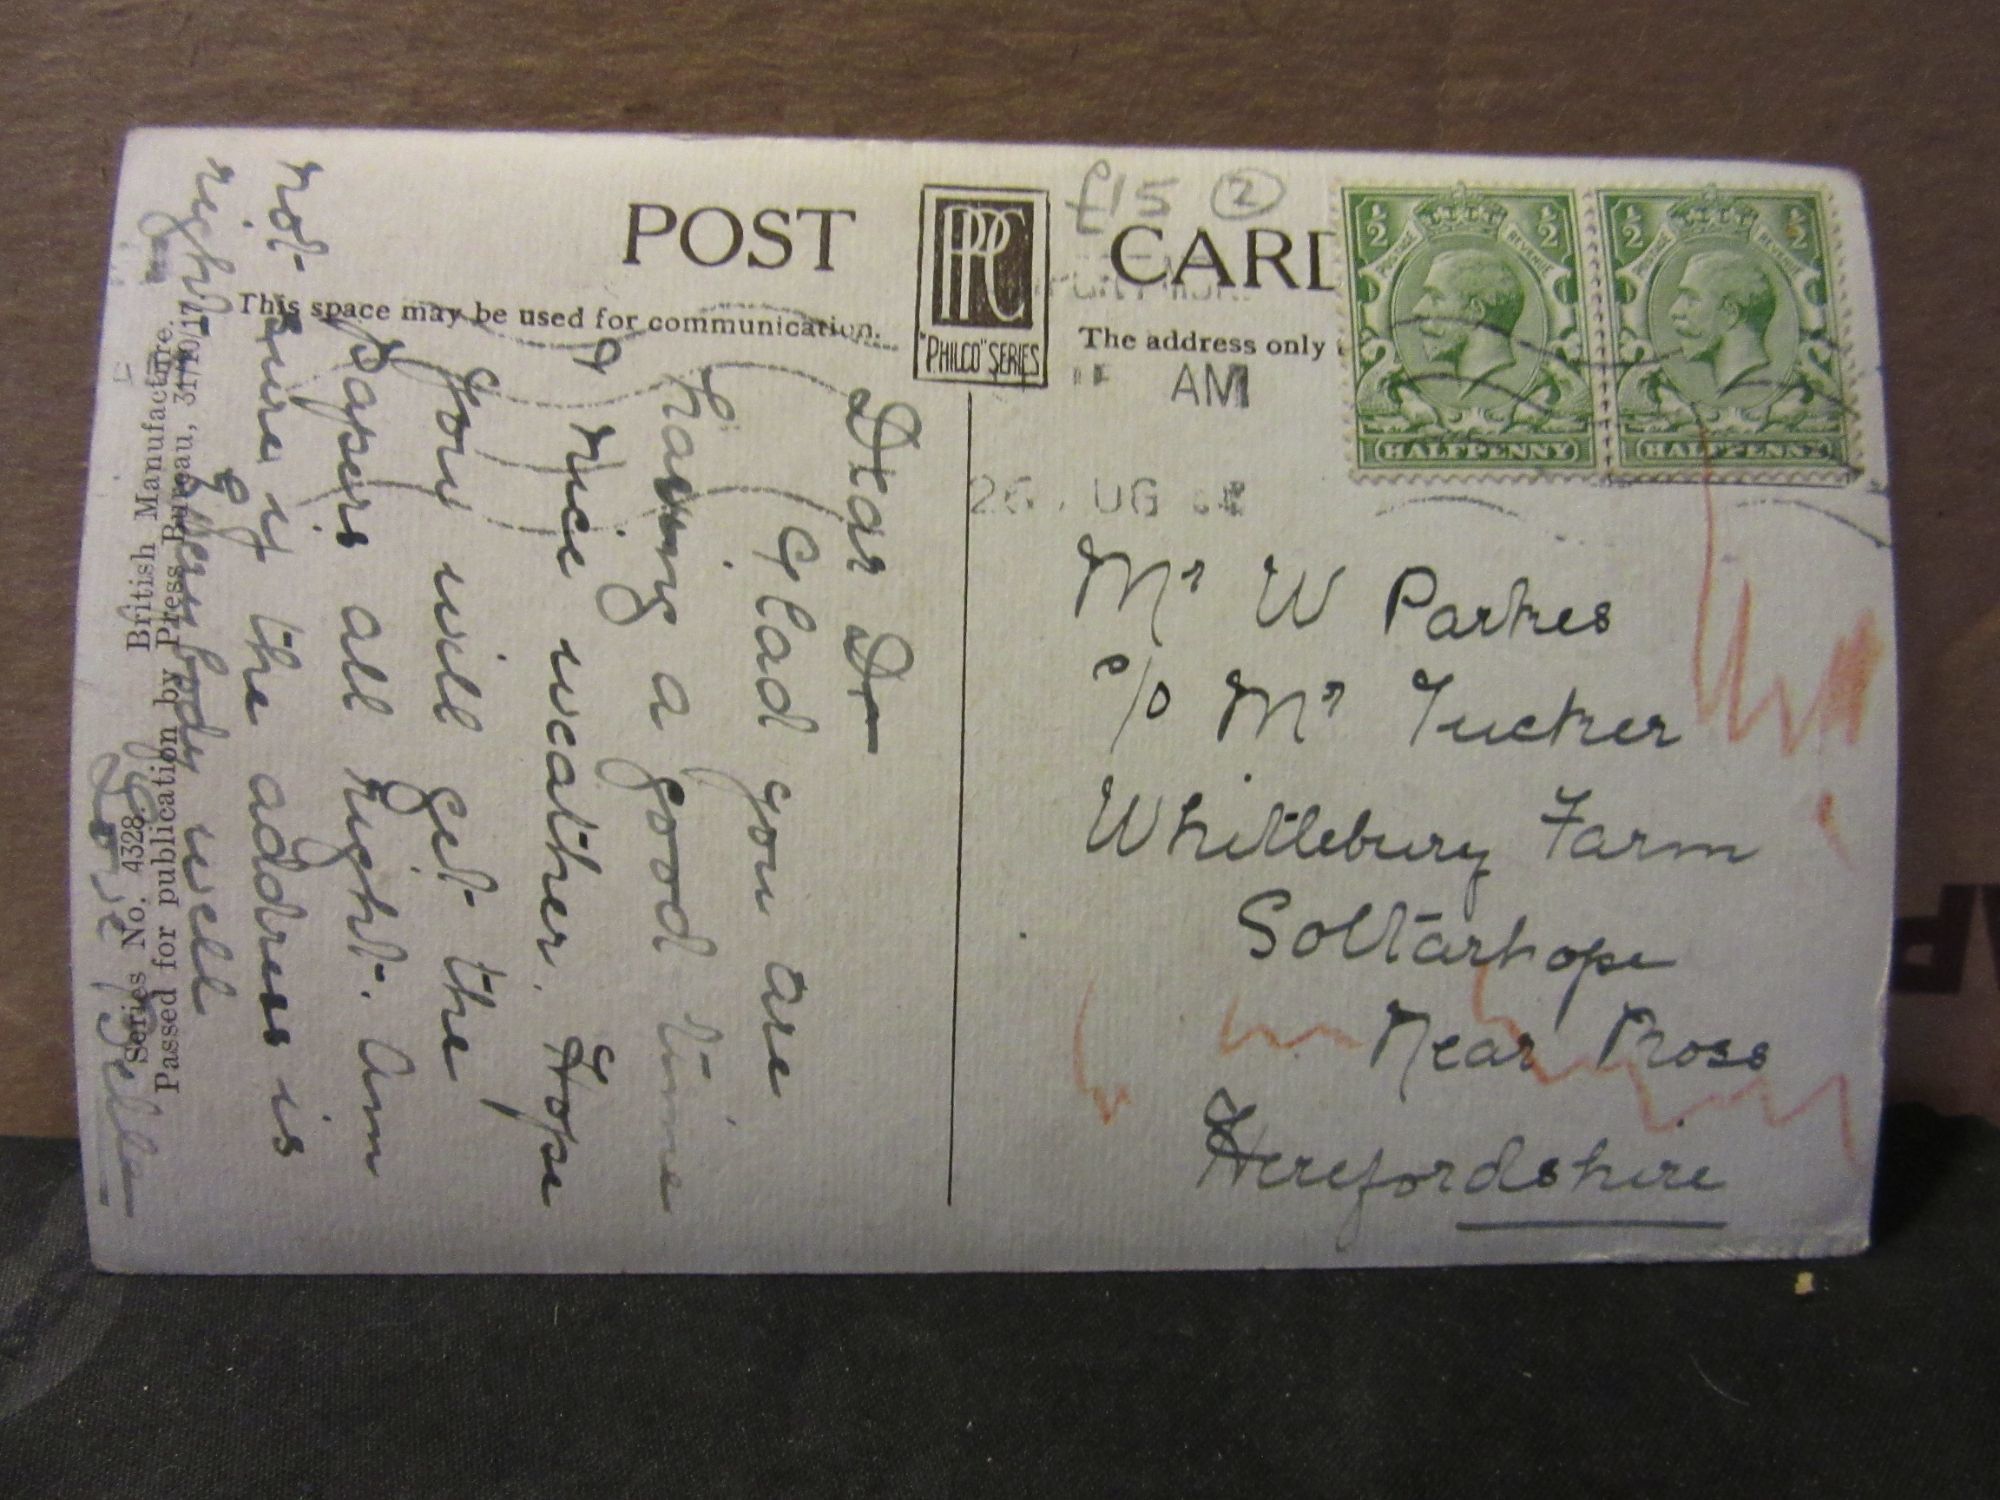 POST CARD
£15 ②
This space may be used for communication.
The address only
PPC
"PHILCO" SERIES
½ ½
POSTAGE REVENUE
HALFPENNY
½ ½
POSTAGE REVENUE
HALFPENNY
AM
26 UG
Mr W Parkes
c/o Mr Tucker
Whittlebury Farm
Solłarhope
Near Ross
Herefordshire
Dear D—
Glad you are
having a good time
& nice weather. Hope
you will get the
papers all right. Am
not sure if the address is
right. Everybody well
Love
British Manufacture.
Series No. 4328.
Passed for publication by Press Bureau, 31/10/17.